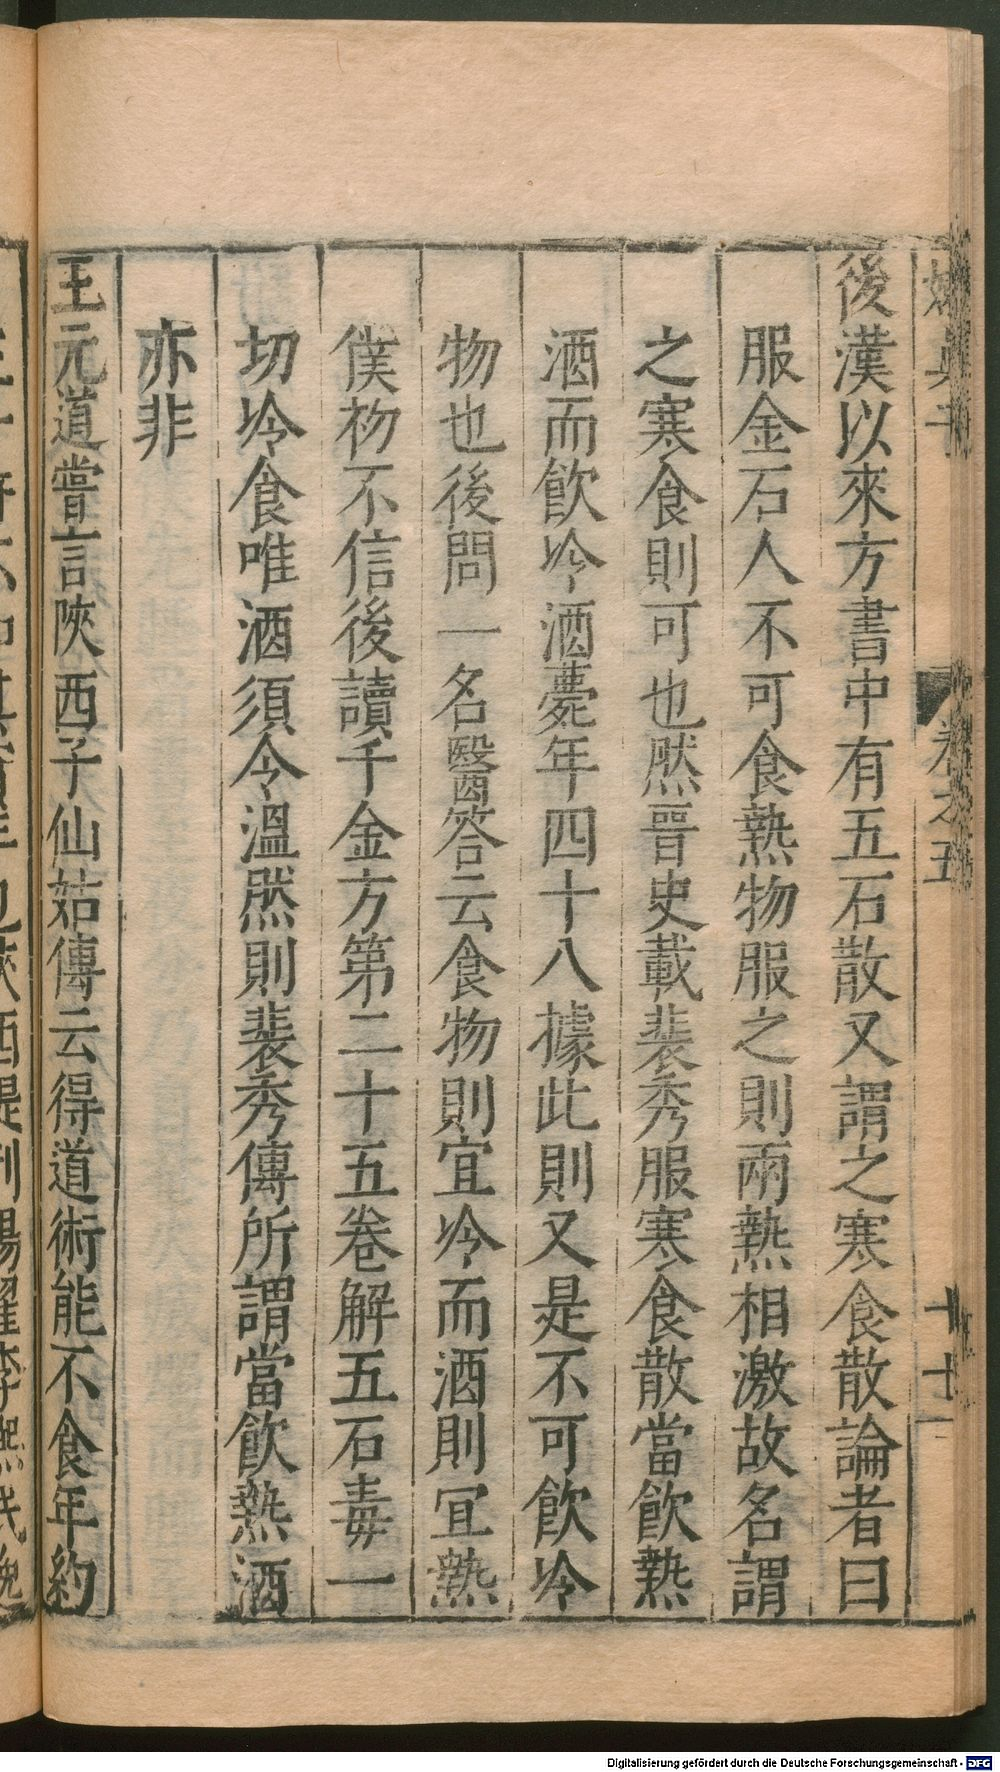 後漢以來方書中有五石散又謂之寒食散論者曰
服金石人不可食熱物服之則兩熱相激故名謂
之寒食則可也然晉史載裴秀服寒食散當飲熱
酒而飲冷酒薨年四十八據此則又是不可飲冷
物也後問一名醫答云食物則宜冷而酒則宜熱
僕初不信後讀千金方第二十五卷解五石毒一
切冷食唯酒須令溫然則裴秀傳所謂當飲熱酒
亦非
王元道嘗言陝西子仙姑傳云得道術能不食年約
卷之五
十七
Digitalisierung gefördert durch die Deutsche Forschungsgemeinschaft - DFG